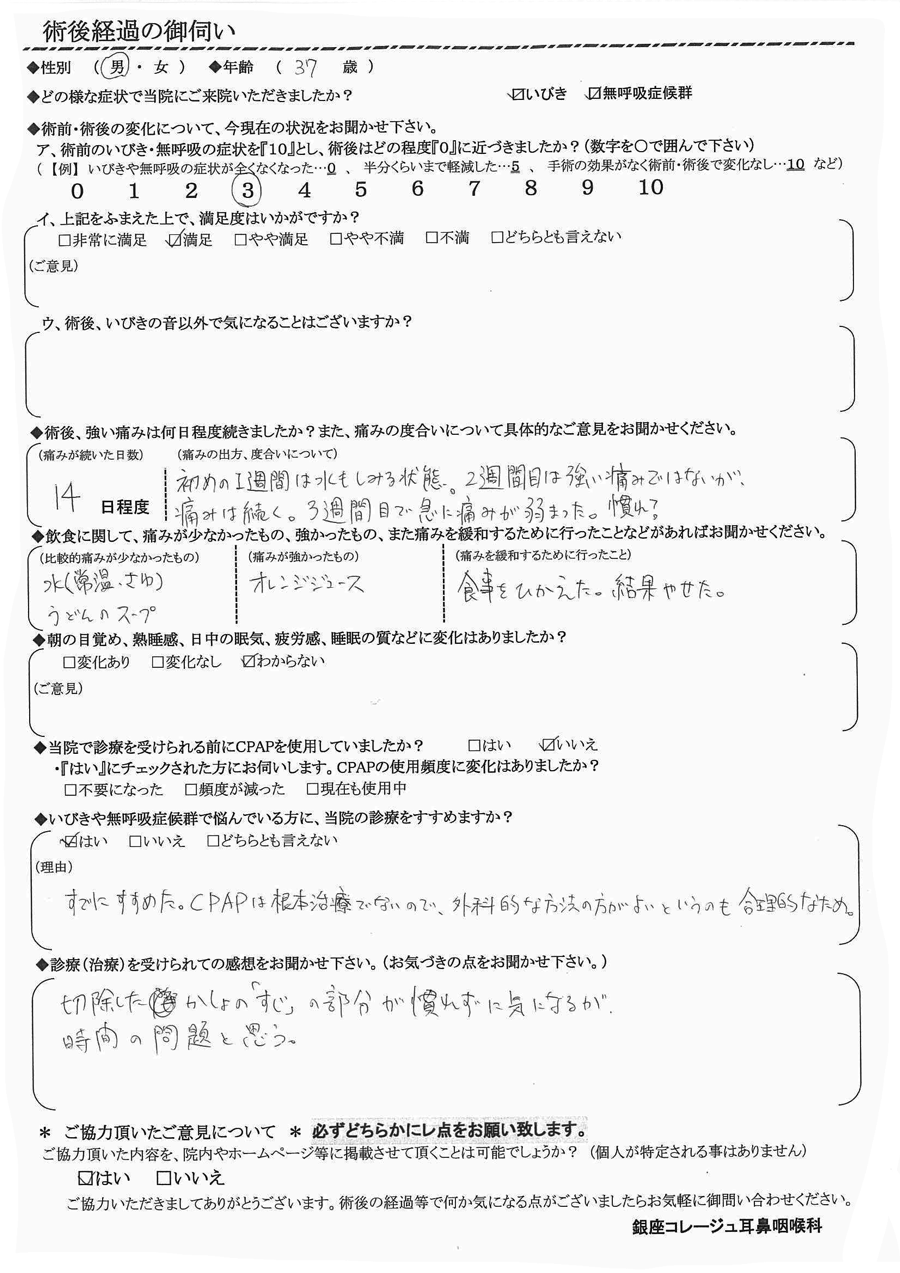 術後経過の御伺い
◆性別 (男・女) ◆年齢 ( 37 歳)
◆どの様な症状で当院にご来院いただきましたか? ☑いびき ☑無呼吸症候群
◆術前・術後の変化について、今現在の状況をお聞かせ下さい。
ア、術前のいびき・無呼吸の症状を『10』とし、術後はどの程度『0』に近づきましたか?(数字を○で囲んで下さい)
(【例】 いびきや無呼吸の症状が全くなくなった…0 、 半分くらいまで軽減した…5 、 手術の効果がなく術前・術後で変化なし…10 など)
0 1 2 3 4 5 6 7 8 9 10
イ、上記をふまえた上で、満足度はいかがですか?
□非常に満足 ☑満足 □やや満足 □やや不満 □不満 □どちらとも言えない
(ご意見)
ウ、術後、いびきの音以外で気になることはございますか?
◆術後、強い痛みは何日程度続きましたか?また、痛みの度合いについて具体的なご意見をお聞かせください。
(痛みが続いた日数) (痛みの出方、度合いについて)
初めの1週間は水もしみる状態。2週間目は強い痛みではないが、
14 日程度 痛みは続く。3週間目で急に痛みが弱まった。慣れて。
◆飲食に関して、痛みが少なかったもの、強かったもの、また痛みを緩和するために行ったことなどがあればお聞かせください。
(比較的痛みが少なかったもの) (痛みが強かったもの) (痛みを緩和するために行ったこと)
水(常温、さゆ) オレンジジュース 食事をひかえた。結果やせた。
うどんのスープ
◆朝の目覚め、熟睡感、日中の眠気、疲労感、睡眠の質などに変化はありましたか?
□変化あり □変化なし ☑わからない
(ご意見)
◆当院で診療を受けられる前にCPAPを使用していましたか? □はい ☑いいえ
・『はい』にチェックされた方にお伺いします。CPAPの使用頻度に変化はありましたか?
□不要になった □頻度が減った □現在も使用中
◆いびきや無呼吸症候群で悩んでいる方に、当院の診療をすすめますか?
☑はい □いいえ □どちらとも言えない
(理由)
すでにすすめた。CPAPは根本治療でないので、外科的な方法の方がよいというのも合理的なため。
◆診療(治療)を受けられての感想をお聞かせ下さい。(お気づきの点をお聞かせ下さい。)
切除したかしょの「すじ」の部分が慣れずに気になるが、
時間の問題と思う。
* ご協力頂いたご意見について * 必ずどちらかにレ点をお願い致します。
ご協力頂いた内容を、院内やホームページ等に掲載させて頂くことは可能でしょうか? (個人が特定される事はありません)
☑はい □いいえ
ご協力いただきましてありがとうございます。術後の経過等で何か気になる点がございましたらお気軽に御問い合わせください。
銀座コレージュ耳鼻咽喉科